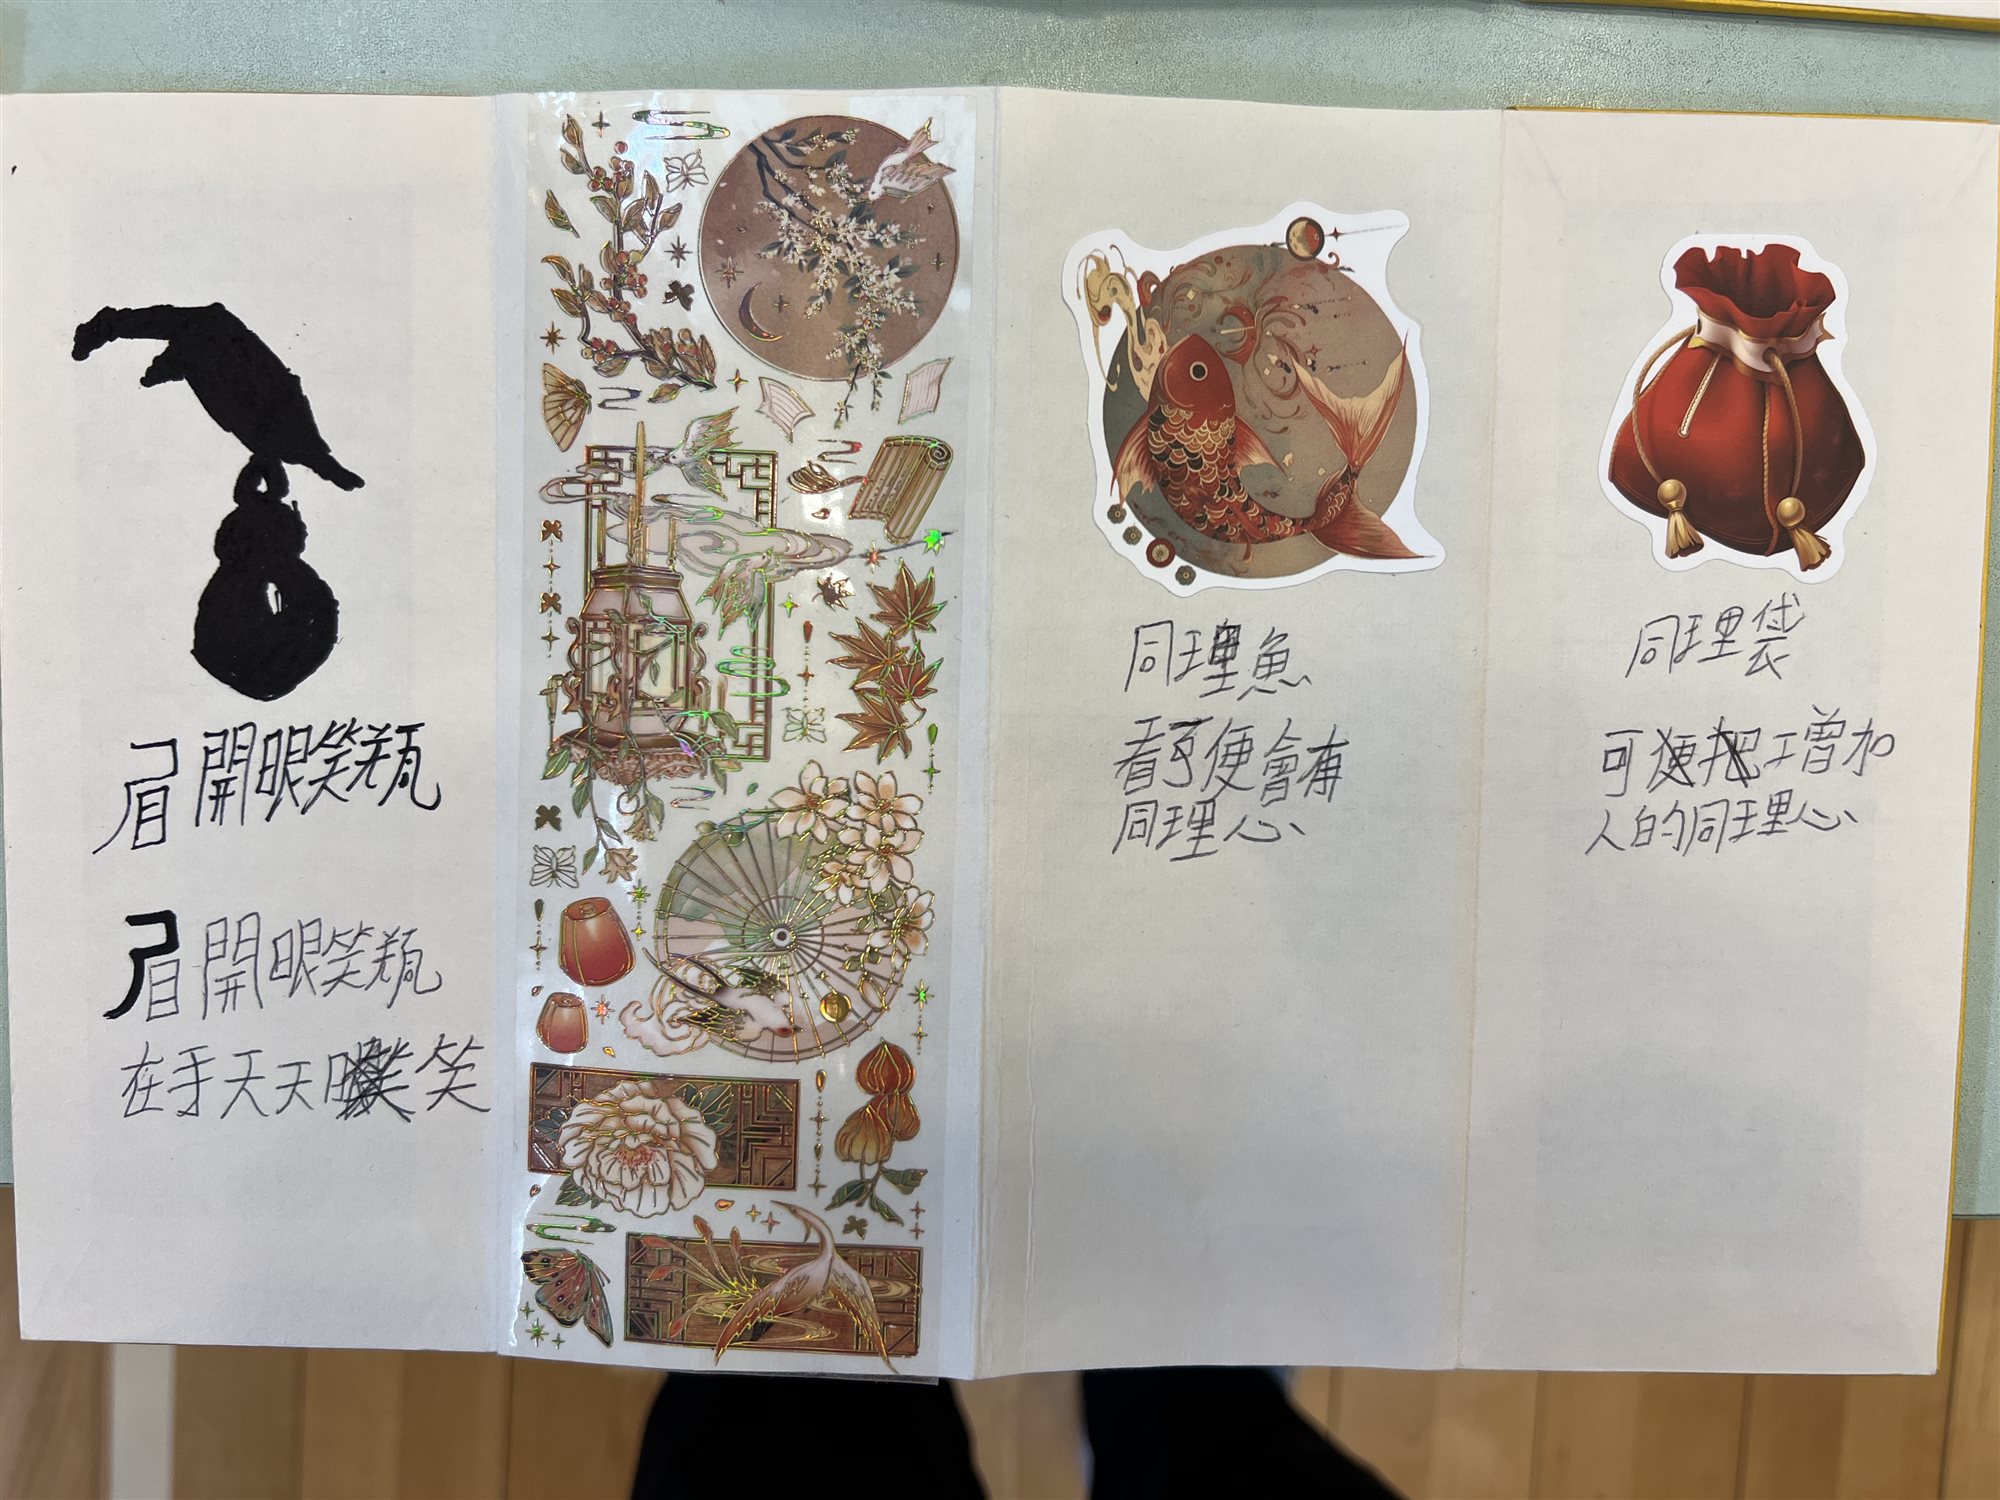 眉開眼笑瓶
眉開眼笑瓶
在手天天笑
同理魚
看了便會有
同理心
同理袋
可增加
人的同理心